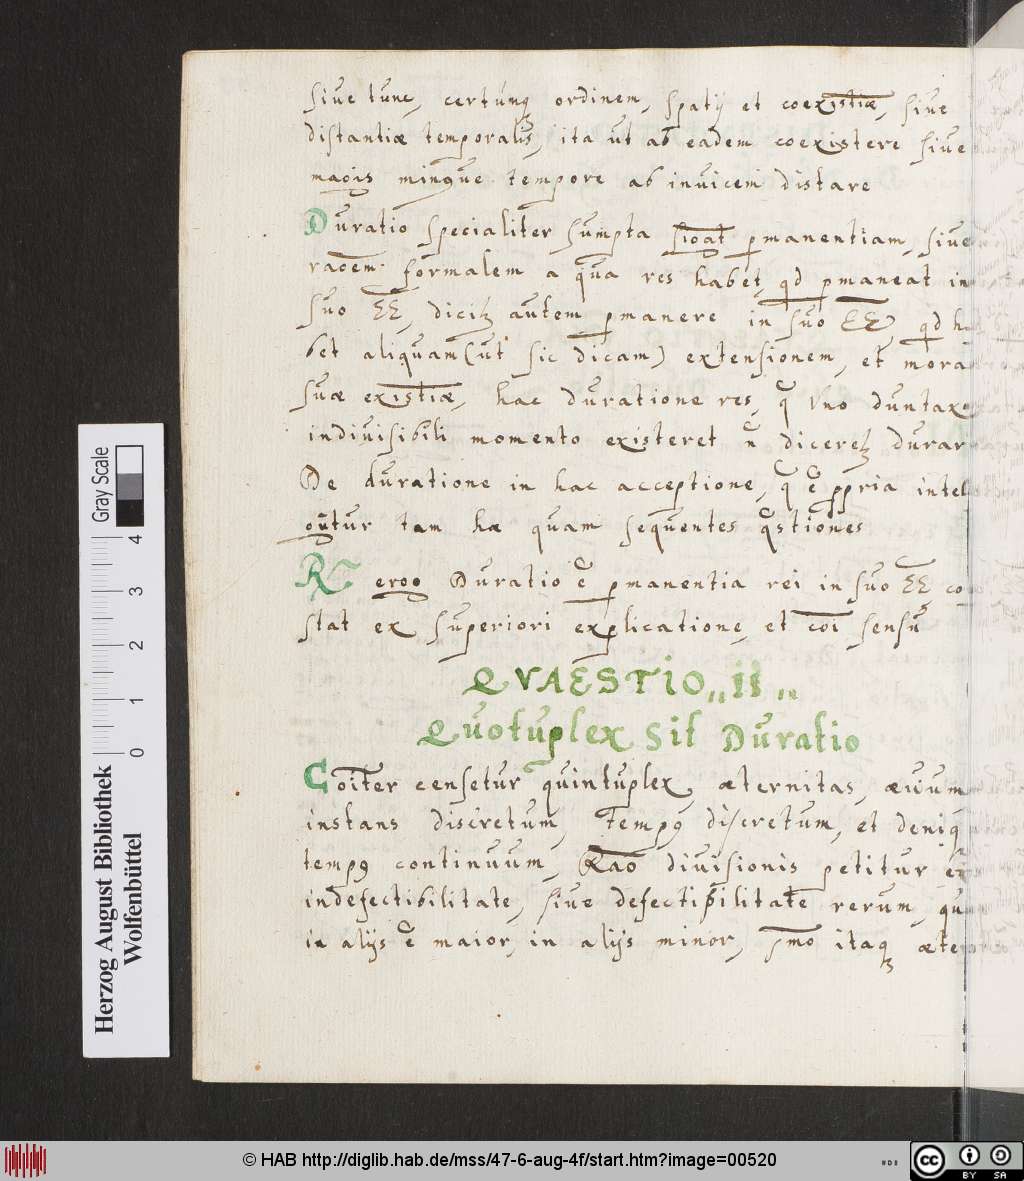 siue tunc, certumq ordinem, spatij et coexistiæ, siue
distantiæ temporalis, ita ut ab eadem coexistere siue
magis minusue tempore ab inuicem distare
Duratio specialiter sumpta sigat pmanentiam, siue
raoem formalem a qua res habet, qd pmaneat in
suo EE, dicit autem pmanere in suo EE qd ha
bet aliquam (ut sic dicam) extensionem, et mora
suæ existiæ, hac duratione res, q vno duntax
indiuisibili momento existeret n diceret durar
De duratione in hac acceptione, q e ppria intel
gutur tam hæ quam sequentes qstiones
R ergo Duratio e pmanentia rei in suo EE co
stat ex superiori explicatione, et coi sensu
QVAESTIO ,, ii ,,
Quotuplex Sit Duratio
Coiter censetur quintuplex, æternitas, æuum
instans discretum, Tempq discretum, et deniq
tempq continuum, Rao diuisionis petitur ex
indefectibilitate, siue defectibilitate rerum, qu
in alijs e maior, in alijs minor, pmo itaq æter
Gray Scale
4
3
2
1
0
Herzog August Bibliothek
Wolfenbüttel
© HAB http://diglib.hab.de/mss/47-6-aug-4f/start.htm?image=00520
cc
BY SA